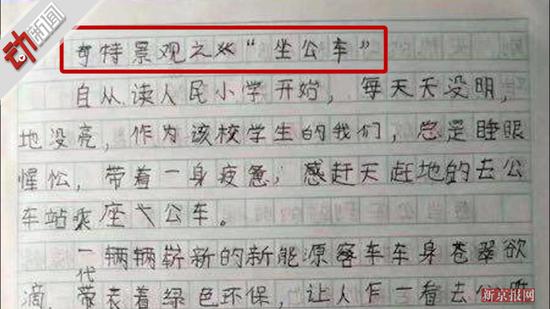 动新闻
奇特景观之"坐公车"
自从读人民小学开始，每天天没明，
地没亮，作为该校学生的我们，总是睡眼
惺忪，带着一身疲惫，感赶天赶地的去公
车站乘座公车。
一辆辆崭新的新能源客车车身苍翠欲
滴，代表着绿色环保，让人乍一看去
新京报网